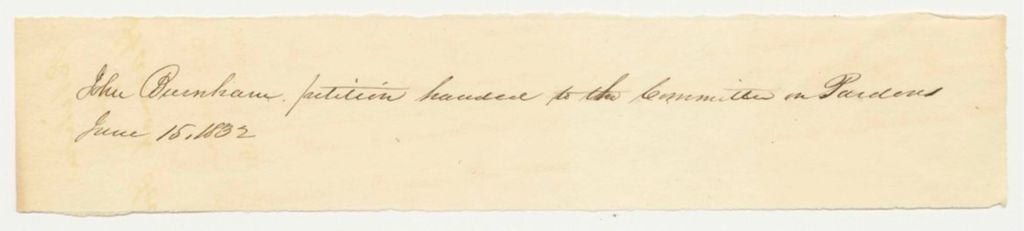 John Burnham. petition handed to the Committee on Pardons
June 15, 1832